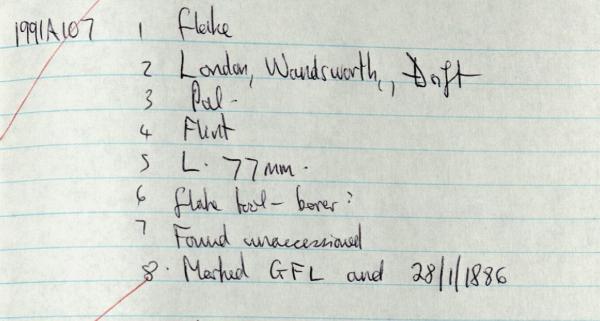 1991A107 1 Flake
2 London, Wandsworth, , Drift
3 Pal -
4 Flint
5 L. 77mm.
6 flake tool - borer?
7 Found unaccessioned
8. Marked GFL and 28/1/1886